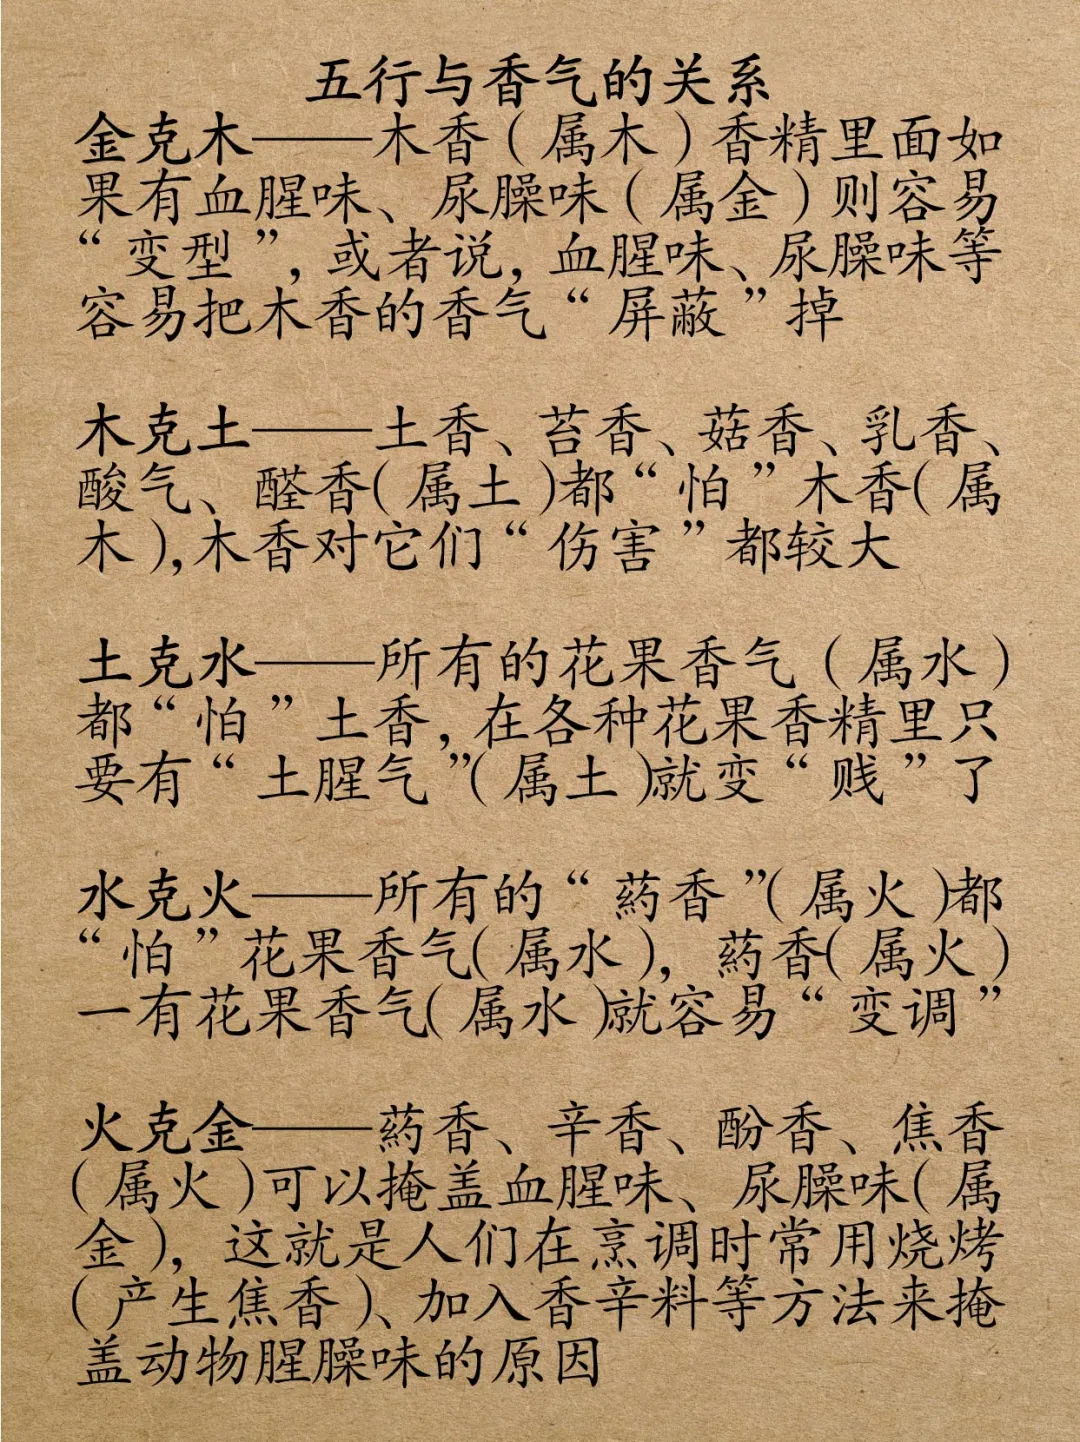 五行与香气的关系
金克木——木香（属木）香精里面如
果有血腥味、尿臊味（属金）则容易
“变型”，或者说，血腥味、尿臊味等
容易把木香的香气“屏蔽”掉
木克土——土香、苔香、菇香、乳香、
酸气、醛香（属土）都“怕”木香（属
木），木香对它们“伤害”都较大
土克水——所有的花果香气（属水）
都“怕”土香，在各种花果香精里只
要有“土腥气”（属土）就变“贱”了
水克火——所有的“药香”（属火）都
“怕”花果香气（属水），药香（属火）
一有花果香气（属水）就容易“变调”
火克金——药香、辛香、酚香、焦香
（属火）可以掩盖血腥味、尿臊味（属
金），这就是人们在烹调时常用烧烤
（产生焦香）、加入香辛料等方法来掩
盖动物腥臊味的原因